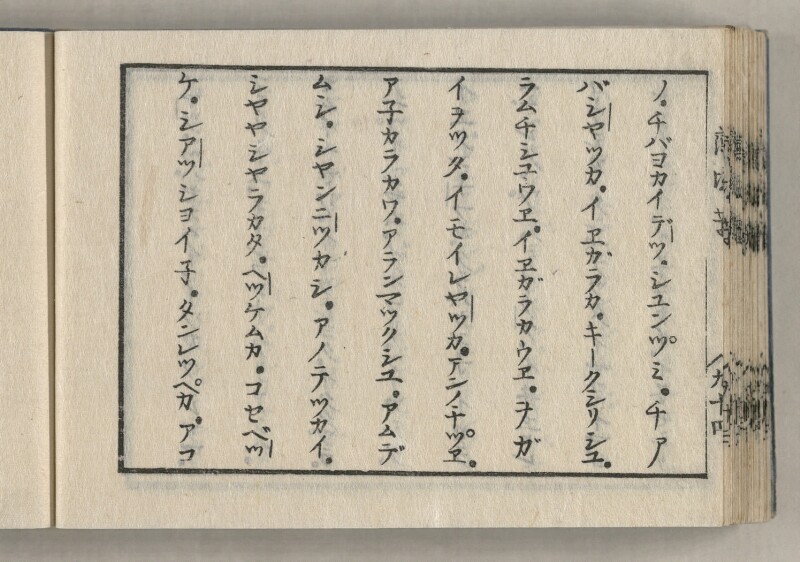 ノ。チバヨカイデツ。シユンツ゚ミ。チア
バシヤツカ。イヱガラカ。キークシリシユ。
ラムチシユウヱ。イヱガラカウヱ。ヲガ
イヲツタ。イモイレヤツカ。アンノチツ゚ヱ。
ア子カラカワ。アランマツクシユ。アムデ
ムシ。シヤンニツカシ。アノテツカイ。
シヤヤシヤラカタ。ベツケムカ。コセベツ
ケ。シアツシヨイ子。タンレツペカ。アコ